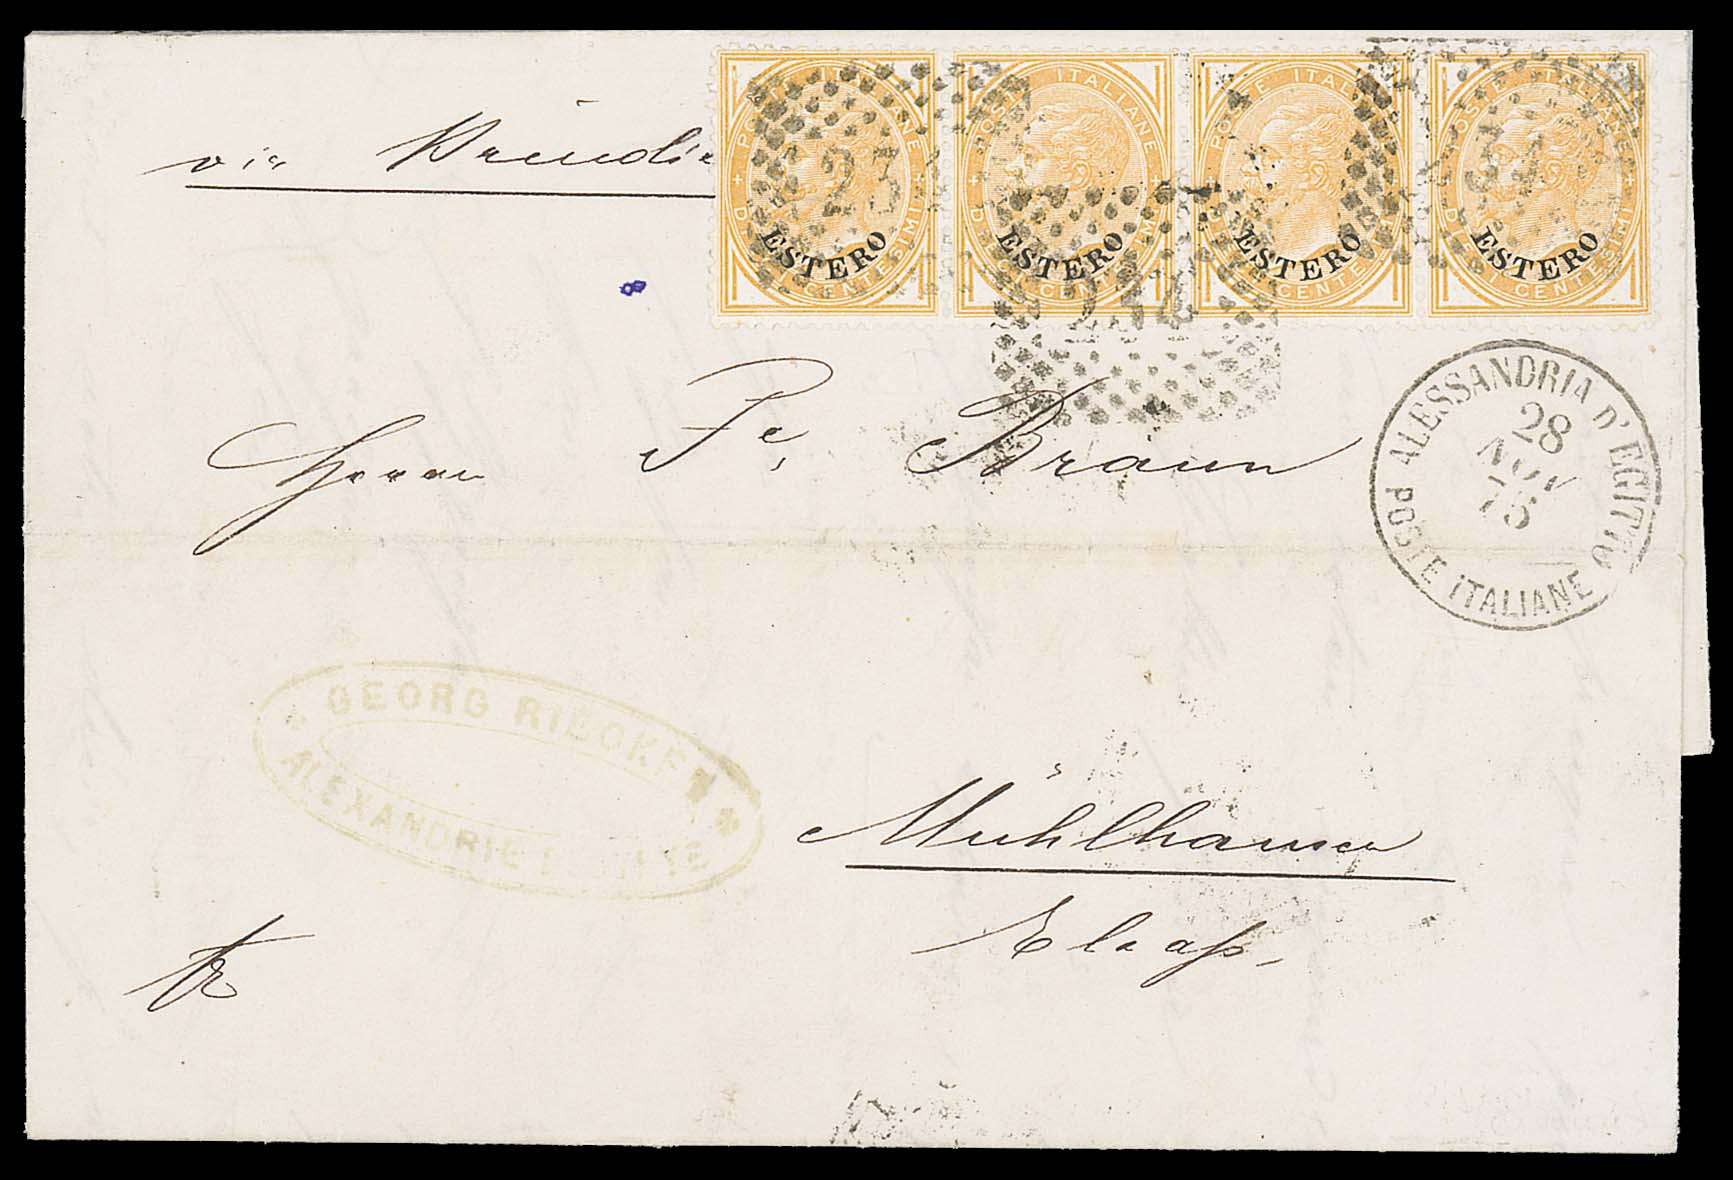 via
POSTE ITALIANE DIECI CENTESIMI
ESTERO
POSTE ITALIANE DIECI CENTESIMI
ESTERO
POSTE ITALIANE DIECI CENTESIMI
ESTERO
POSTE ITALIANE DIECI CENTESIMI
ESTERO
234
234
234
Herrn Fr. Braun
ALESSANDRIA D'EGITTO
28
NOV
75
POSTE ITALIANE
GEORG RIECKEN
ALEXANDRIE EGYPTE
Mühlhausen
Elsaß